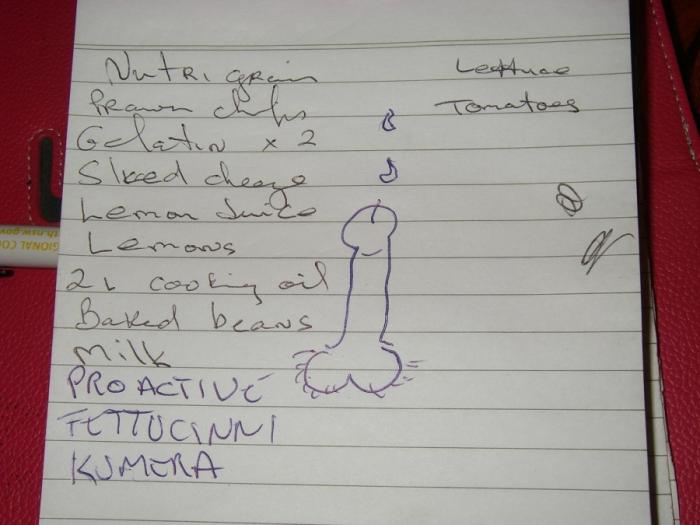 Nutri grain
Prawn chips
Gelatin x 2
Sliced cheese
Lemon Juice
Lemons
2L cooking oil
Baked beans
Milk
PROACTIVE
FETTUCINNI
KUMERA
Lettuce
Tomatoes
GIONAL CO
th.nsw.gov